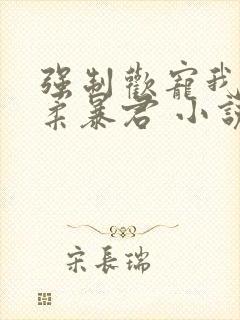 强制歡寵我
柔暴君 小說
宋長瑞